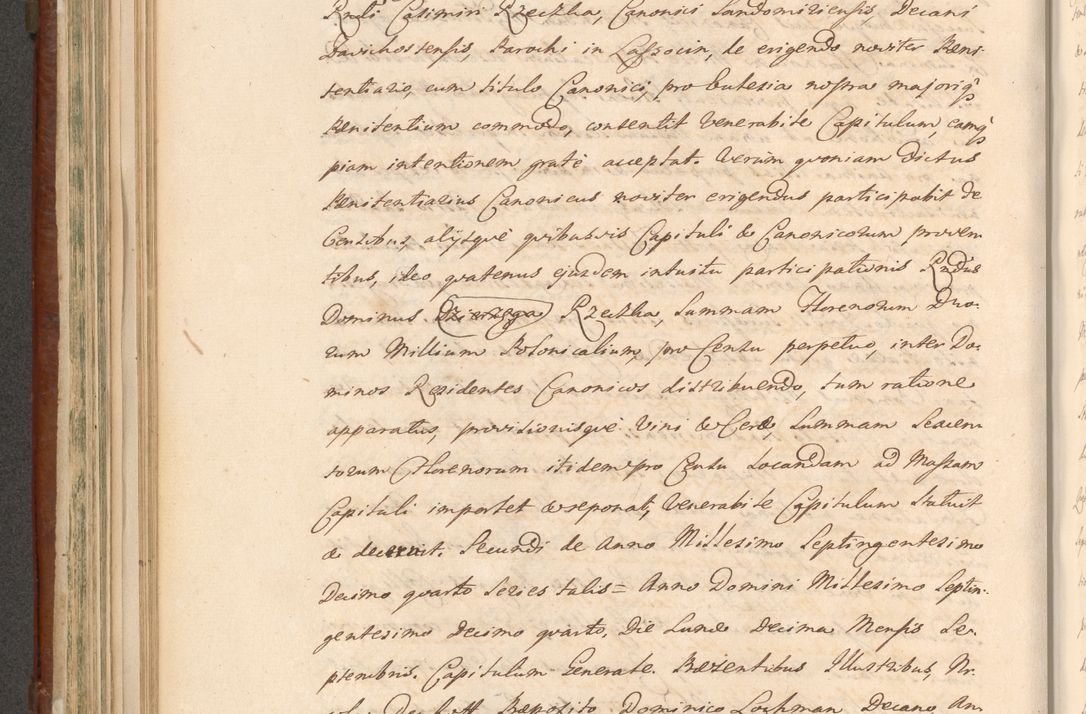 Rndi Casimiri Rzeczka, Canonici Sandomiriensis, Decani
Zavichostensis, Parochi in Lassocin, de erigendo noviter Peni-
tentiario, cum titulo Canonici, pro Ecclesia nostra majoriq
Penitentium commodo, consentit Venerabile Capitulum, eamq
piam intentionem grate acceptat. Verùm qvoniam dictus
Penitentiarius Canonicus noviter erigendus participabit de
Censibus, alijsqvè qvibusvis Capituli & Canonicorum proven
tibus, ideo qvatenus ejusdem intuitu participationis Rndus
Dominus Rzeczka, Summam Florenorum Duo-
rum Millium Polonicalium, pro Censu perpetuo, inter Do-
minos Residentes Canonicos distribuendo, tum ratione
apparatus, provisionisqvè Vini & Ceræ, Summam Sexcen
torum Florenorum itidem pro Censu Locandam ad Massam
Capituli importet & reponat, Venerabile Capitulum Statuit
& decrevit. Secundi de Anno Millesimo Septingentesimo
Decimo qvarto Series talis = Anno Domini Millesimo Septin-
gentesimo Decimo qvarto, Die Lunæ Decima Mensis Se-
ptembris. Capitulum Generale. Præsentibus Illustribus, Nr.
Præposito Dominico Lochman Decano, An-